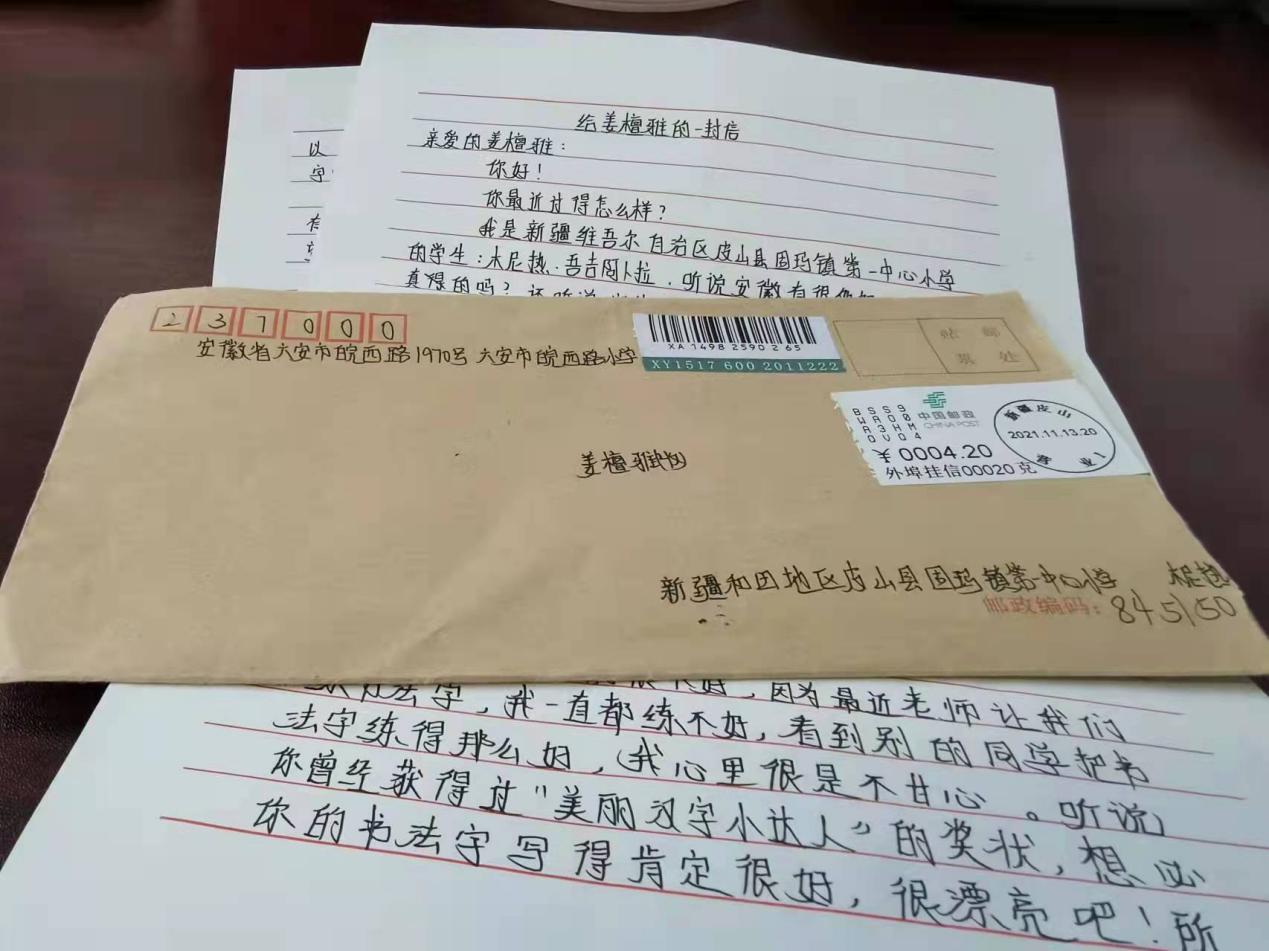 给姜檀雅的一封信
亲爱的姜檀雅：
你好！
你最近过得怎么样？
我是新疆维吾尔自治区皮山县固玛镇第一中心小学
的学生：木尼热·吾吉阿卜拉．听说安徽有很
真得的吗？还听说
以
字
237000
安徽省六安市皖西路1970号 六安市皖西路小学
XA 1498 2590 2 65
XY1517 600 2011222
贴 邮
票 处
BSS9
WA08
A3HM
OVO4
中国邮政
CHINA POST
¥0004.20
外埠挂信00020克
新疆皮山
2021.11.13.20
业1
姜檀雅
新疆和田地区皮山县固玛镇第一中心小学 木尼热
邮政编码：845150
法字，我一直都练不好，因为最近老师让我们
法字练得那么好，我心里很是不甘心。听说
你曾经获得过“美丽汉字小达人”的奖状，想必
你的书法字写得肯定很好，很漂亮吧！所